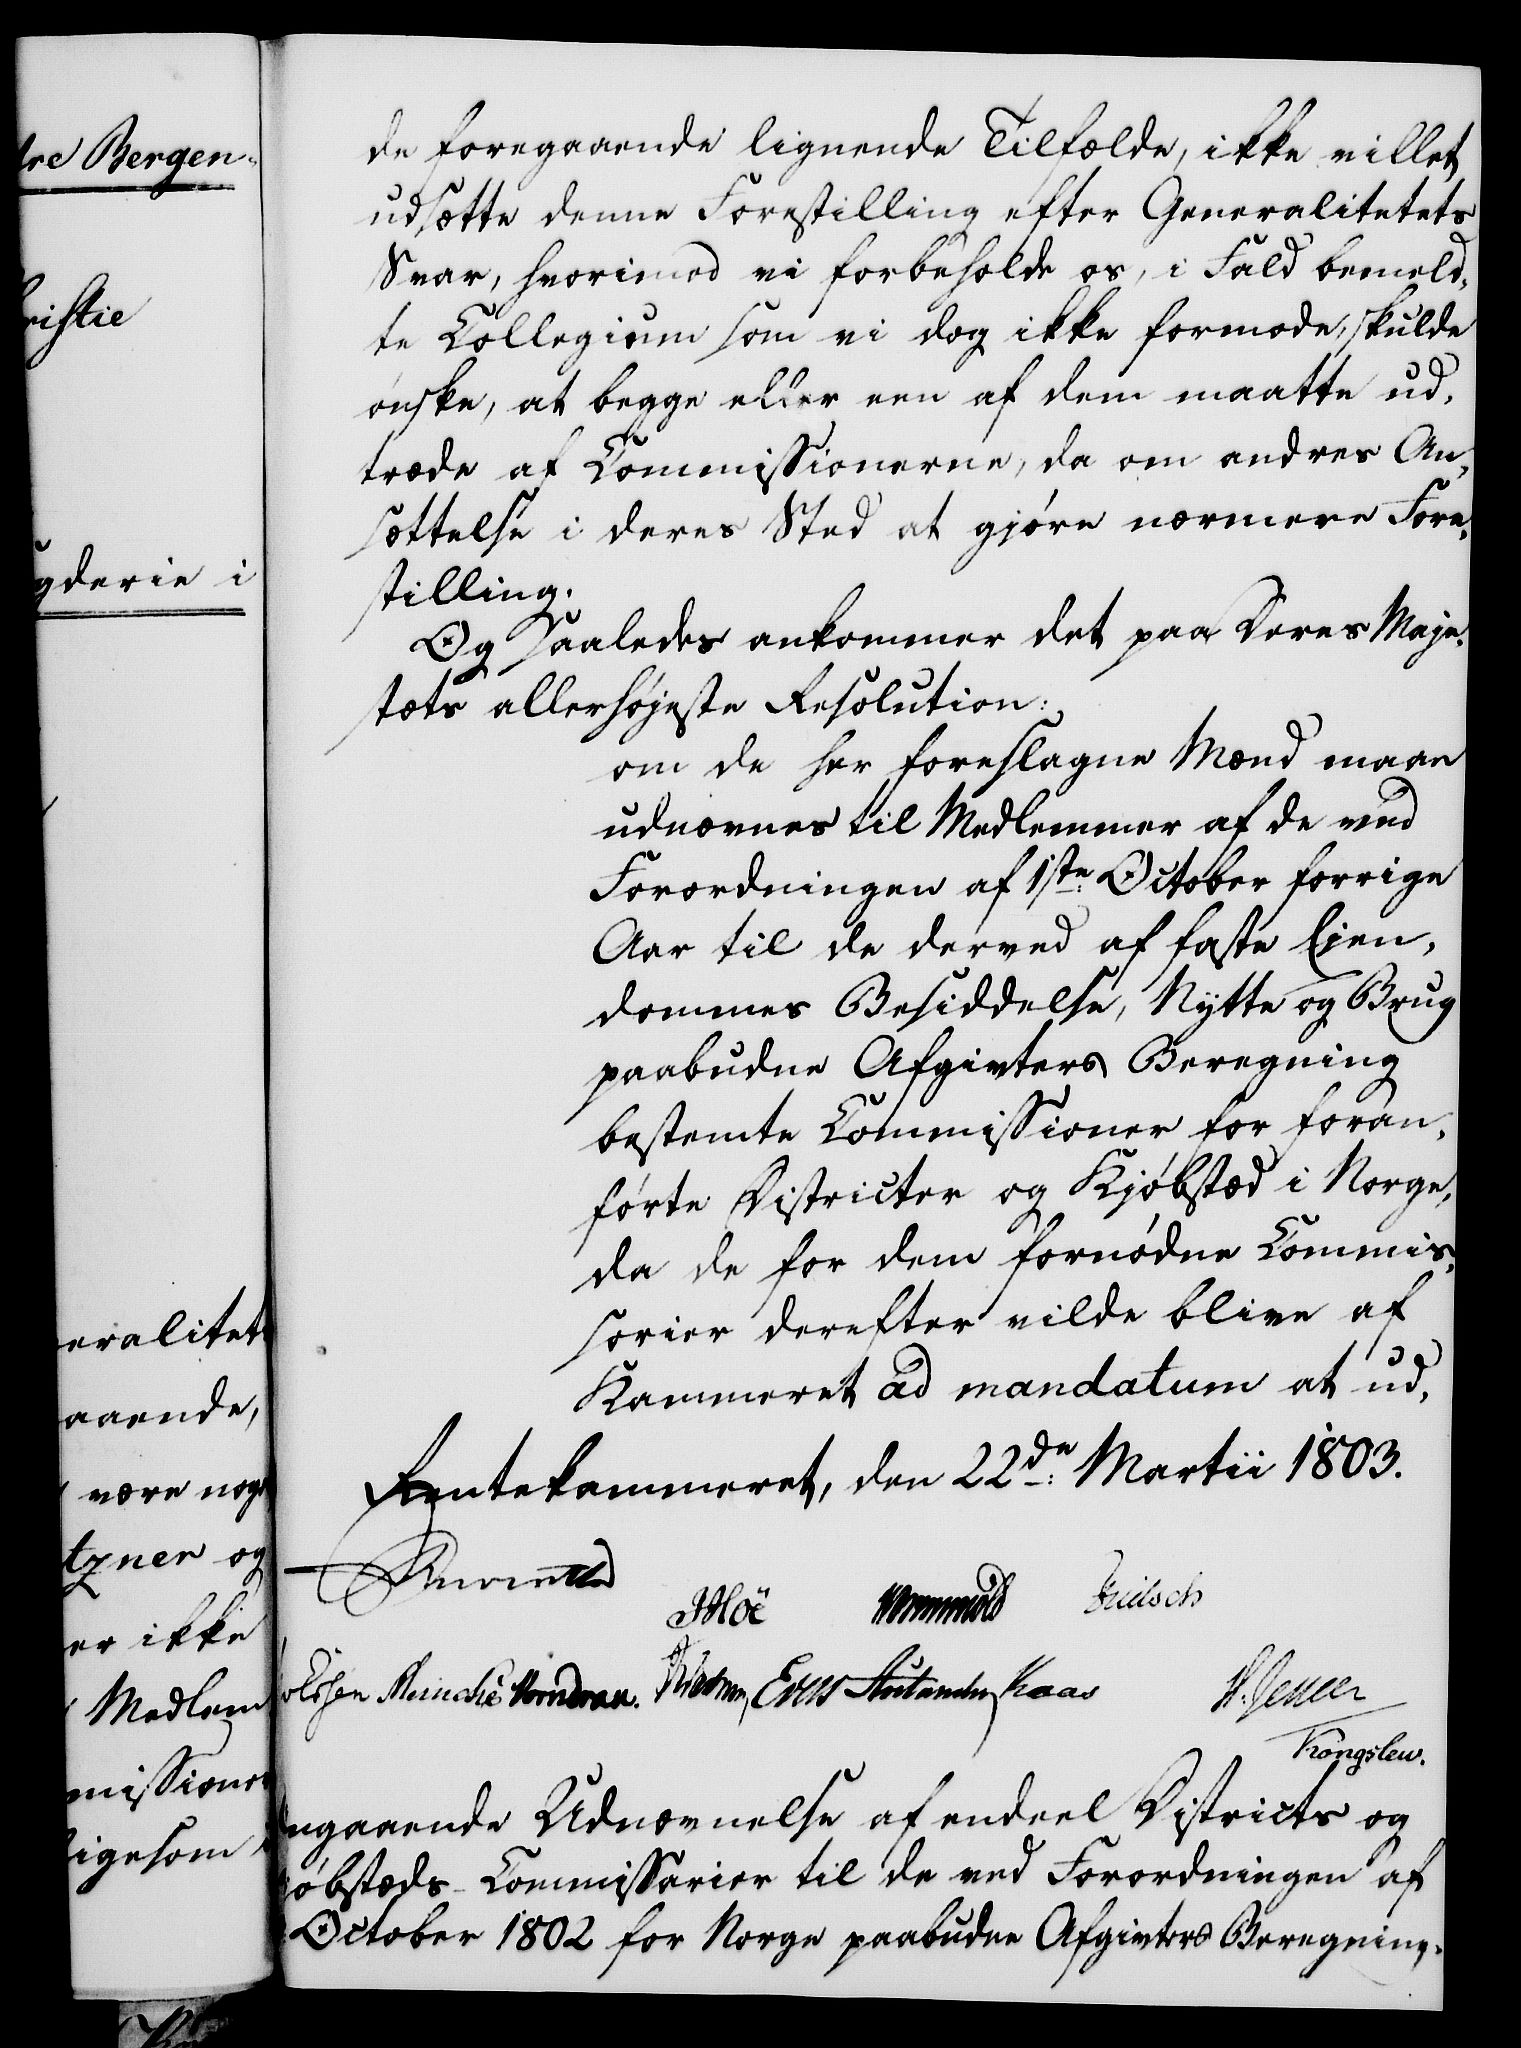 dre Bergen-
hristie
gderie i
eralitet
aaende,
være nog
tzner og
er ikke
Medlem
missioner
ligesom
de foregaaende lignende Tilfælde, ikke villet
udsætte denne Forestilling efter Generalitetets
Svar, hvorimod vi forbeholde os, i Fald bemeld-
te Collegium som vi dog ikke formode, skulde
ønske, at begge eller een af dem maatte ud-
træde af Commissionerne, da om andres An-
sættelse i deres Sted at gjøre nærmere Fore-
stilling.
Og saaledes ankommer det paa Deres Maje-
stæts allerhøjeste Resolution:
om de her foreslagne Mænd maae
udnævnes til Medlemmer af de ved
Forordningen af 1ste October forrige
Aar til de derved af faste Eien-
dommes Besiddelse, Nytte og Brug
paabudne Afgivters Beregning
bestemte Commissioner for foran-
førte Districter og Kjøbstæd i Norge,
da de for dem fornødne Commis-
sorier derefter vilde blive af
Kammeret ad mandatum at ud-
Rentekammeret, den 22de Martii 1803.
Reventlow
Wormskiold
Meinche Wormdran. Kaas
Kongslew.
ngaaende Udnævnelse af endeel Districts og
øbstæds-Commissarier til de ved Forordningen af
October 1802 for Norge paabudne Afgivters Beregning.